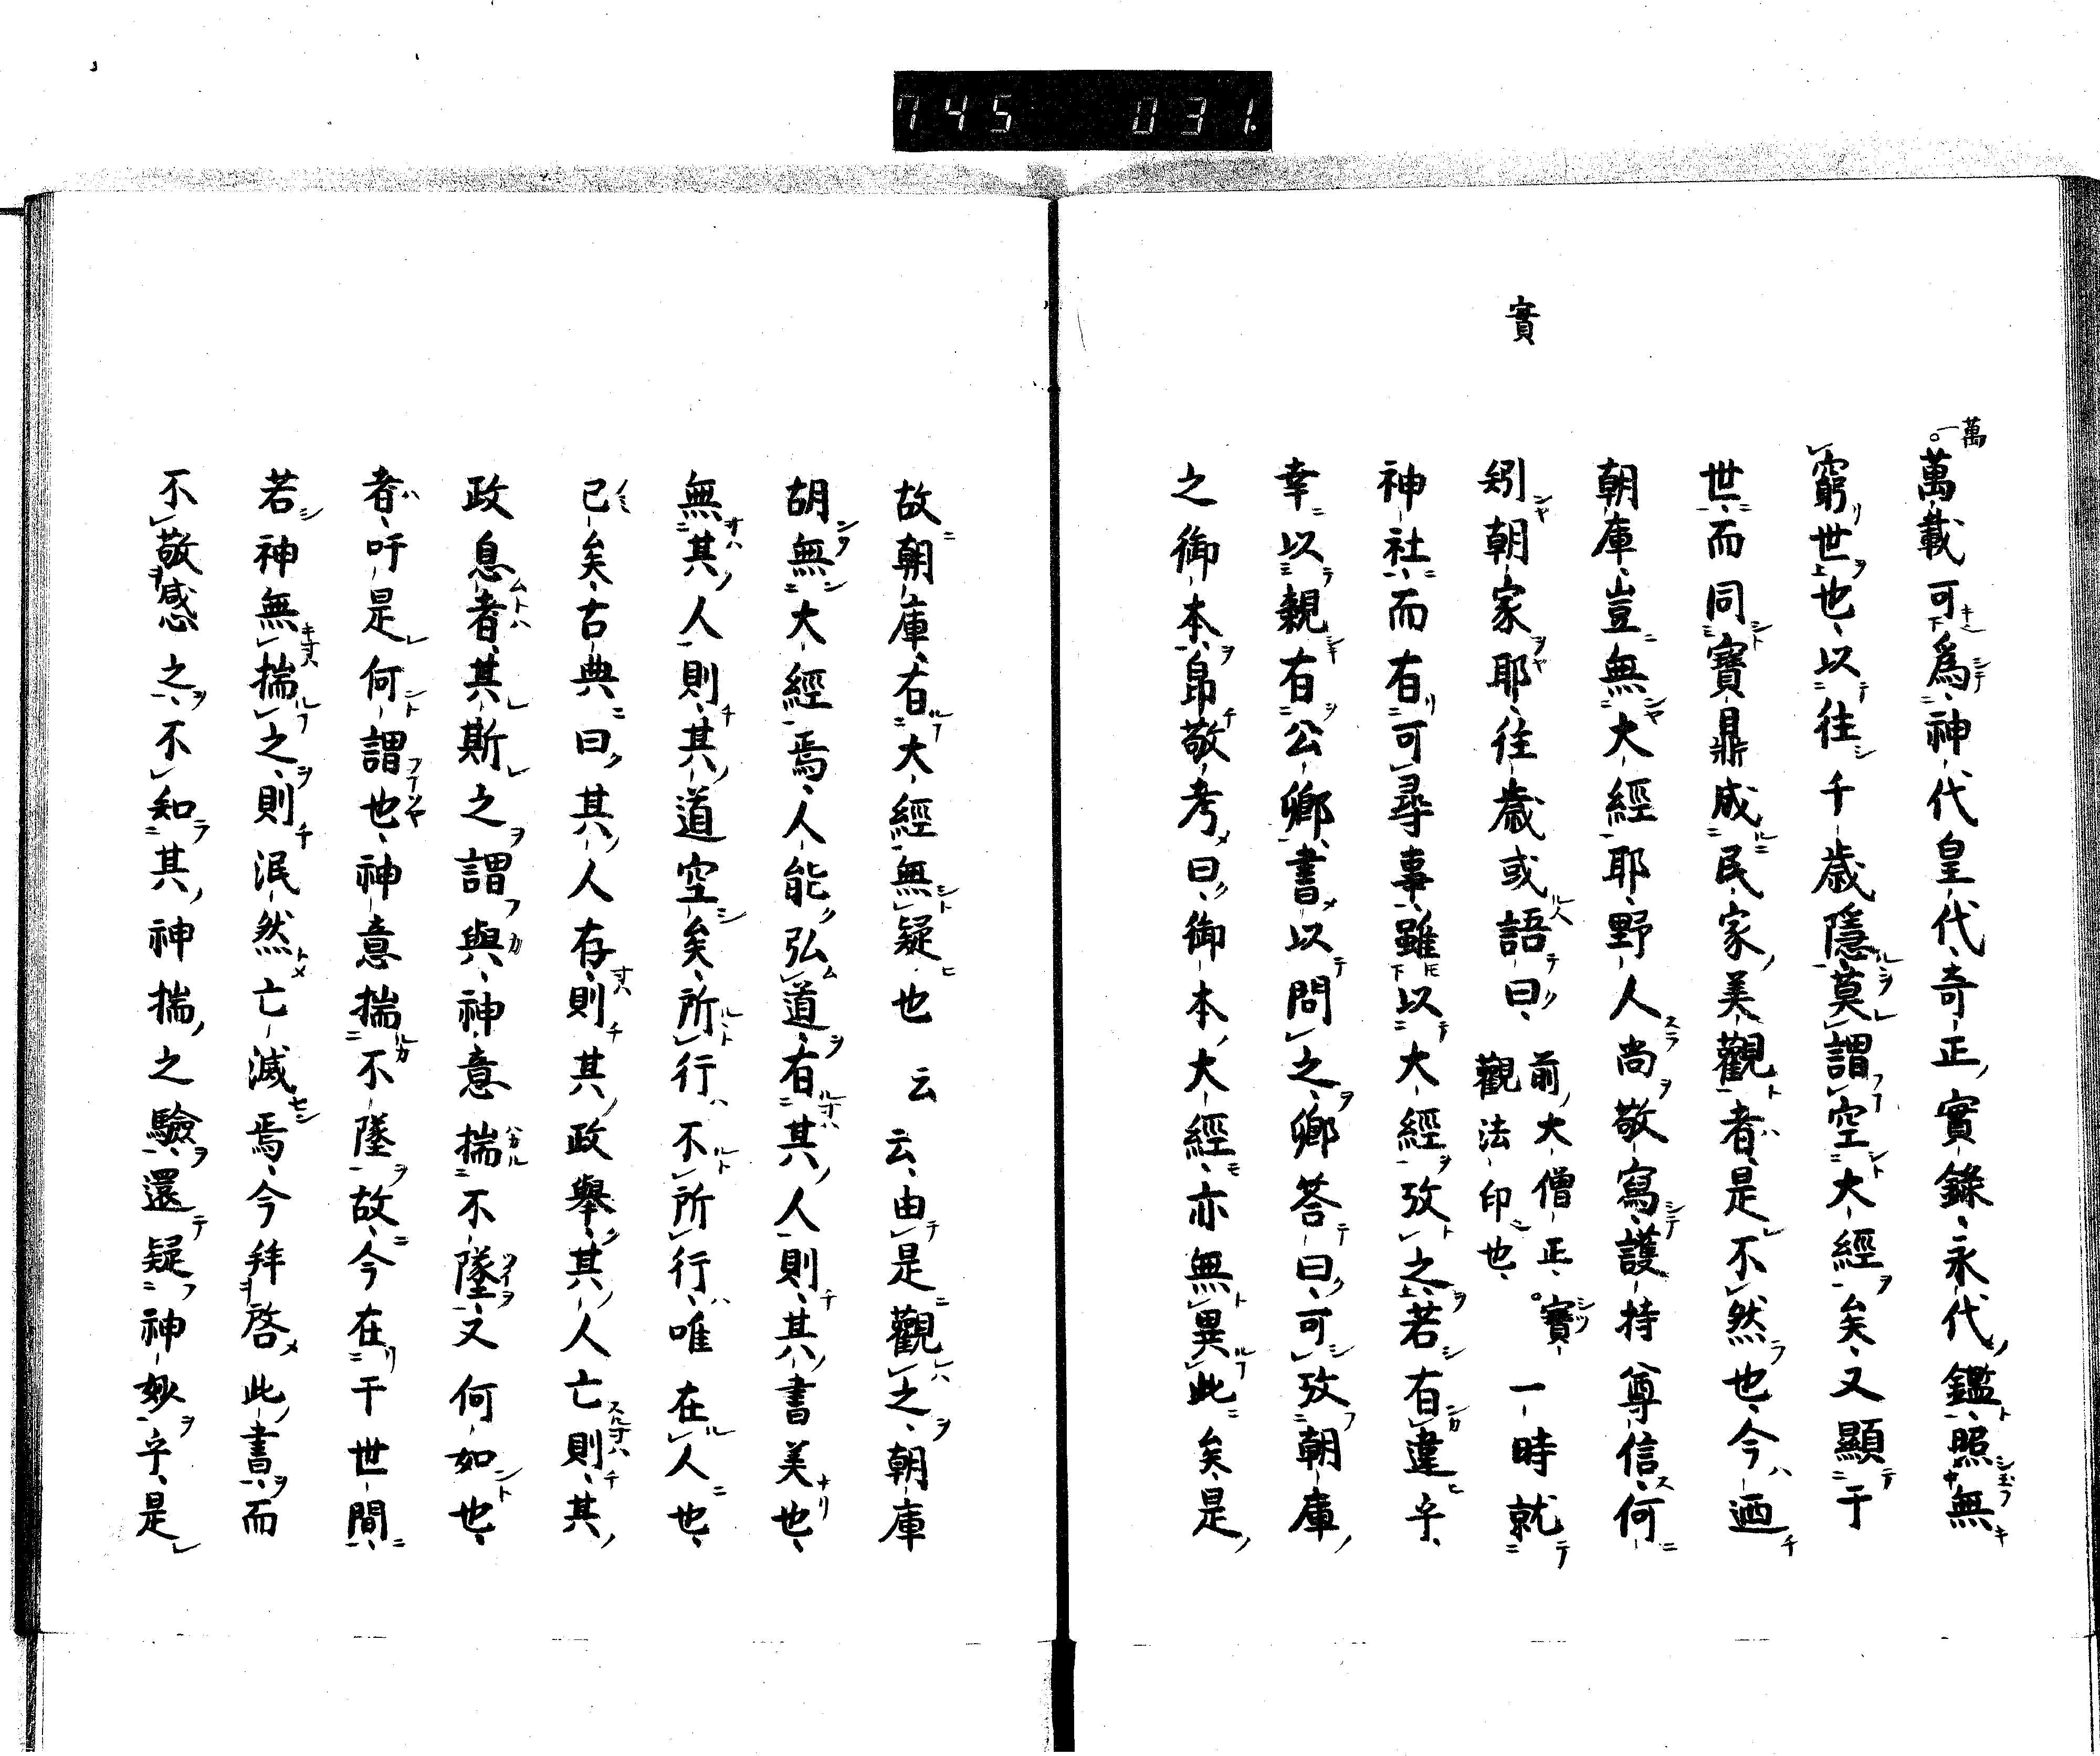 745 031.
實
萬
萬載可爲神代皇代奇正實錄永代鑑照無
窮世也以往千歳隱莫謂空大經矣又顯于
世而同寳鼎成民家美觀者是不然也今迺
朝庫豈無大經耶野人尚敬寫護持尊信何
矧朝家耶往歳或語曰前大僧正實觀法印也一時就
神社而有可尋事雖以大經攷之若有違乎
幸以親有公卿書以問之卿答曰可攷朝庫
之御本帛敬考曰御本大經亦無異此矣是
故朝庫有大經無疑也云云由是觀之朝庫
胡無大經焉人能弘道有其人則其書美也
無其人則其道空矣所行不所行唯在人也
已矣古典曰其人存則其政舉其人亡則其
政息者其斯之謂與神意揣不墜又何如也
者吁是何謂也神意揣不墜故今在于世間
若神無揣之則泯然亡滅焉今拜啓此書而
不敬感之不知其神揣之驗還疑神妙乎是